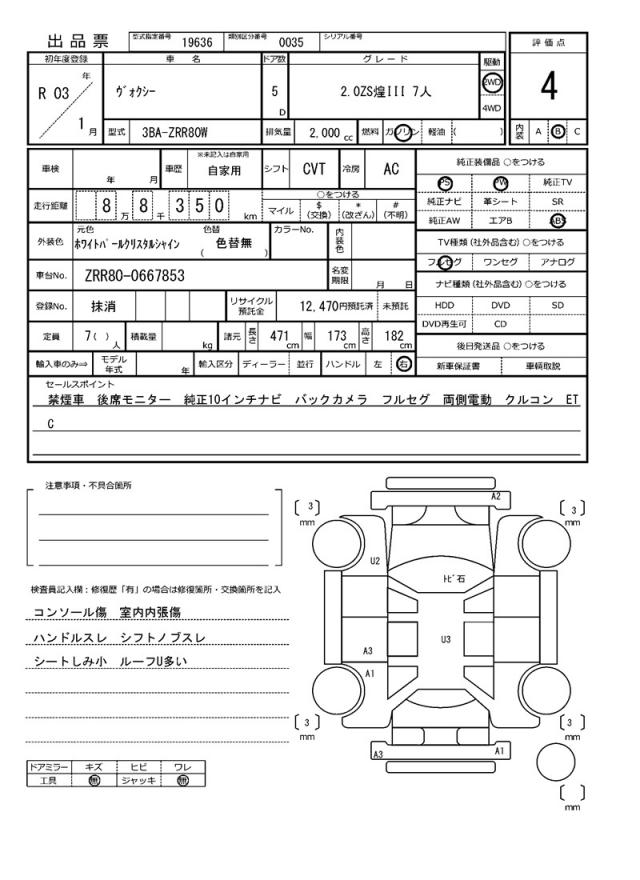 出品票 型式指定番号 19636 類別区分番号 0035 シリアル番号
評価点
4
内装 A B C
初年度登録 車名 ドア数 グレード 駆動
R 03 年 1 月 ヴォクシー 5 D 2.0ZS煌III 7人 2WD 4WD
型式 3BA-ZRR80W 排気量 2,000 cc 燃料 ガソリン 軽油 ( )
車検 年 月 車歴 ※未記入は自家用 自家用 シフト CVT 冷房 AC
走行距離 8 万 8 千 3 5 0 km ○をつける マイル $ (交換) * (改ざん) # (不明)
外装色 元色 ホワイトパールクリスタルシャイン 色替 ( 色替無 ) カラーNo. 内装色
車台No. ZRR80-0667853 名変期限 月 日
登録No. 抹消 リサイクル預託金 12,470円預託済 未預託
定員 7( ) 人 積載量 kg 諸元 長さ 471 cm 幅 173 cm 高さ 182 cm
輸入車のみ⇒ モデル年式 年 輸入区分 ディーラー 並行 ハンドル 左 右
純正装備品 ○をつける
PS PW 純正TV
純正ナビ 革シート SR
純正AW エアB ABS
TV種類(社外品含む) ○をつける
フルセグ ワンセグ アナログ
ナビ種類(社外品含む) ○をつける
HDD DVD SD
DVD再生可 CD
後日発送品 ○をつける
新車保証書 車輌取説
セールスポイント
禁煙車 後席モニター 純正10インチナビ バックカメラ フルセグ 両側電動 クルコン ET
C
注意事項・不具合箇所
検査員記入欄:修復歴「有」の場合は修復箇所・交換箇所を記入
コンソール傷 室内内張傷
ハンドルスレ シフトノブスレ
シートしみ小 ルーフU多い
ドアミラー キズ ヒビ ワレ
工具 無 ジャッキ 無
A2
[ 3 ] mm [ 3 ] mm
U2
トビ石
A3 U3
A1
[ 3 ] mm [ 3 ] mm
A3 A1
[ ] mm